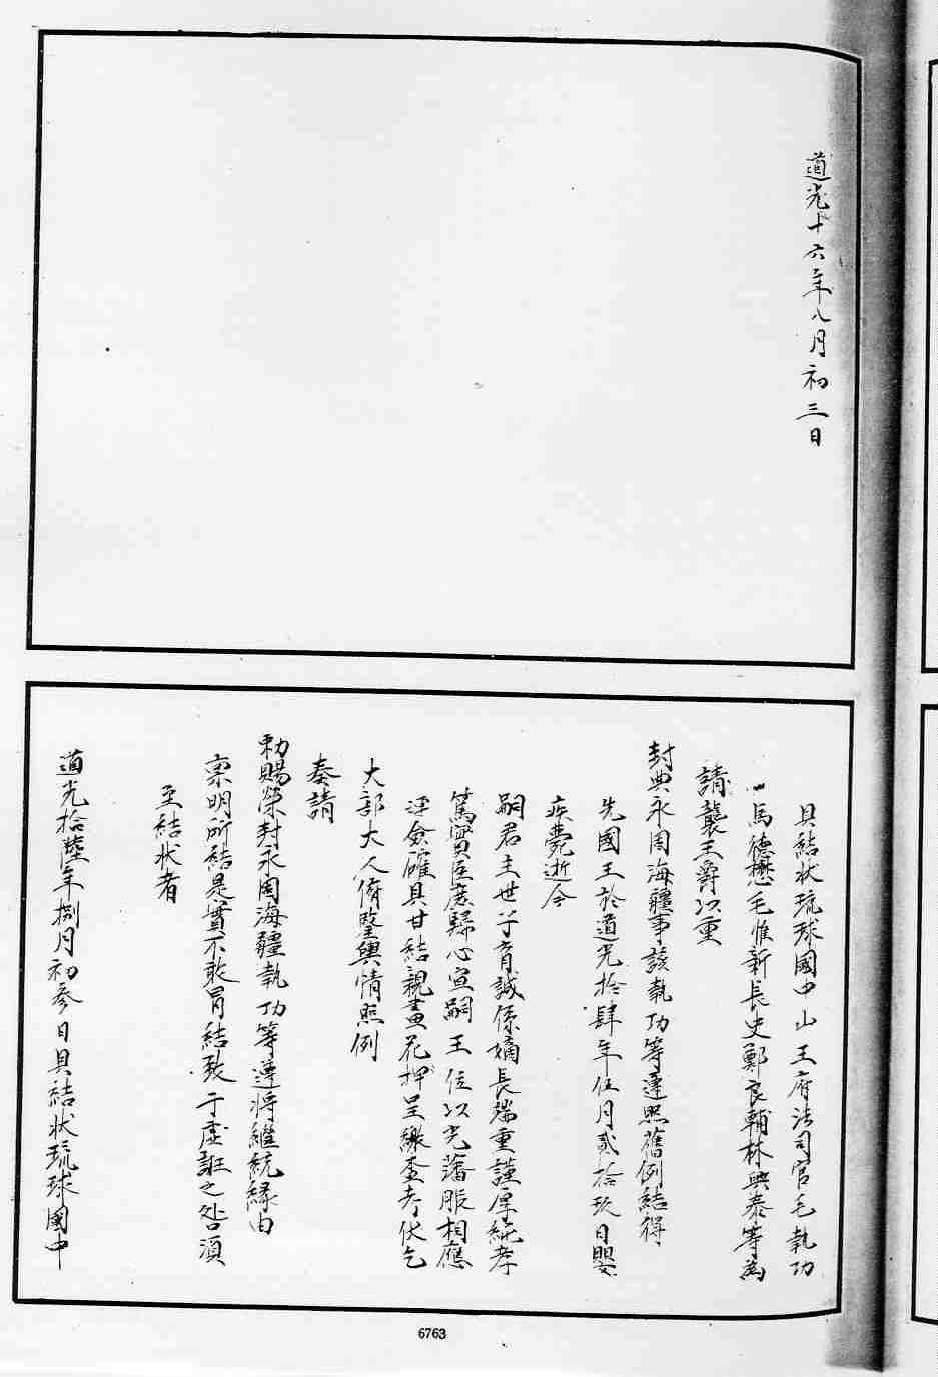 道光十六年八月初三日
具結状琉球國中山王府法司官毛執功
馬德懋毛惟新長史鄭良輔林興泰等為
請襲王爵以重
封典永固海疆事該執功等遵照舊例結得
先國王於道光拾肆年伍月貳拾玖日嬰
疾薨逝今
嗣君主世子育誠係嫡長端重謹厚純孝
篤實臣庶歸心宣嗣王位以光藩服相應
浮僉確具甘結親畫花押呈繳查考伏乞
大部大人俯鑒輿情照例
奏請
勅賜榮封永固海疆執功等遵將繼統緣由
稟明所結是實不敢冒結致于虛誑之咎須
至結状者
道光拾陸年捌月初參日具結状琉球國中
6763